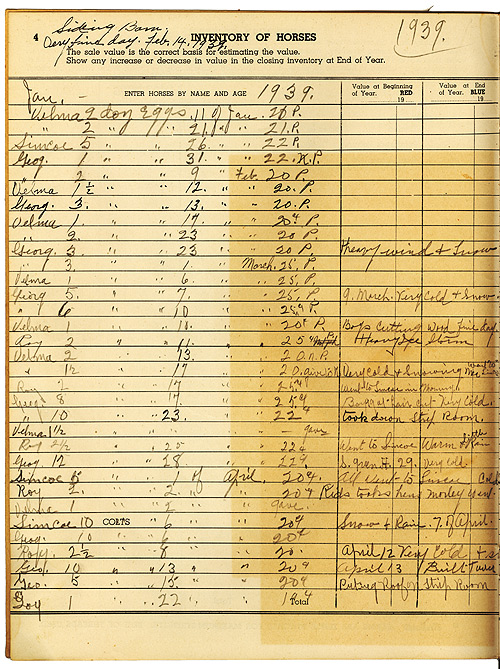 Siding Barn.
Very fine day. Feb. 14. 1939.
1939.
4 INVENTORY OF HORSES
The sale value is the correct basis for estimating the value.
Show any increase or decrease in value in the closing inventory at End of Year.
Jan. ENTER HORSES BY NAME AND AGE 1939. Value at Beginning of Year. RED 19 Value at End of Year. BLUE 19
Velma 2 doz Eggs. 11 of Jan. 20 P.
" 2 " " 21 " " 21. P.
Simcoe 5 " " 26. " " 22 P.
Geog. 1 " " 31. " " 22.
" 2 " " 9 " Feb. 20 P.
Velma 1½ " " 12. " " 20. P.
Georg. 3. " " 13. " " 20. P.
Velma 1. " " 17. " " 20¢ P.
" 2. " " 23 " " 20 P
Georg. 3 " " 23 " " 20 P Heavy wind & Snow
" 3. " " 1. March. 25. P.
Velma 1 " " 6. " " 25, P.
Georg 5. " " 7. " " 25, P. 9. March. Very Cold & Snow
" 6 " " 10 " " 25¢ P.
Velma 1 " " 10. " " 20¢ P. Boys Cutting Wood fine day
Roy 2 " " 11. " " 25¢ Heavy Storm
Velma 2 " " 13. " " 20. P.
" 1½ " " 17 " " 20. Very Cold & Snowing
Roy 2 " " 17 " " 25¢ Went to Simcoe in Morning
Georg 8 " " 17 " " 25¢ Very Cold.
" 10 " " 23. " " 22¢ took down Strip Room.
Velma 1½ " " — gave
Roy 2½ " " 25 " " 22¢ Went to Simcoe Warm & Rain
Geog. 12 " " 28. " " 22¢ 29. Very Cold
Simcoe 5 " " 1 of April. 20¢. All went to Simcoe Cold
Roy. 2 " " 2 " " 20¢ Kids
Velma 1 " " 2 " " gave.
Simcoe 10 COLTS " 6 " " 20¢ Snow & Rain. 7. of April.
Geog. 10 " " 6 " " 20¢
Roy. 2½ " " 8 " " 20. April 12 Very Cold &
Geo. 10 " " 13 " " 20¢ April 13 Built
Geo. 5 " " 15. " " 20¢ Roof on Strip Room
Roy 1 " " 22 " Total 18¢